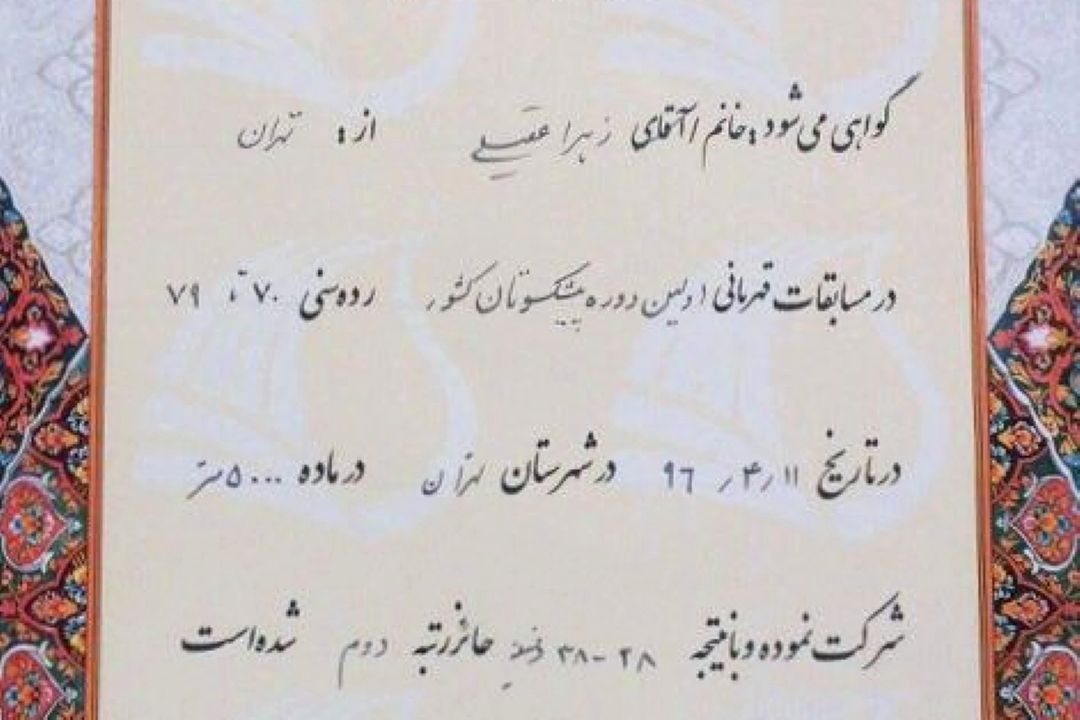 گواهی می شود: خانم / آقای زهرا عقیلی از: تهران
در مسابقات قهرمانی اولین دوره پیشکسوتان کشور رده سنی ۷۰ تا ۷۹
در تاریخ ۱۱ / ۴ / ۹۶ در شهرستان تهران در ماده ۵۰۰۰ متر
شرکت نموده و با نتیجه ۳۸-۲۸ دقیقه حائز رتبه دوم شده است